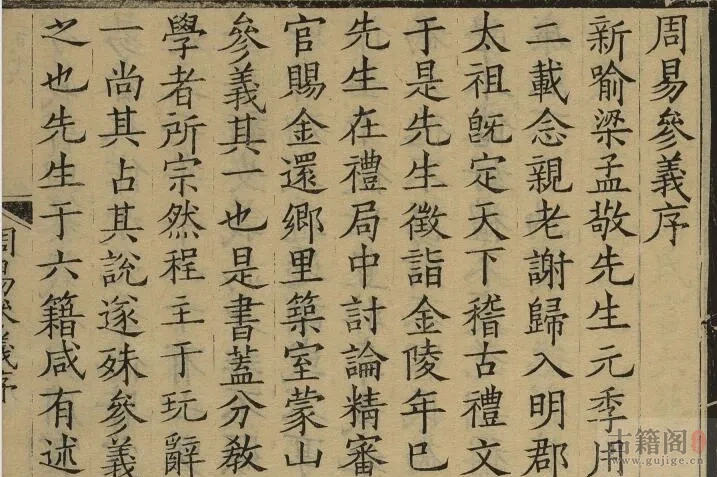 周易參義序
新喻梁孟敬先生元季用
二載念親老謝歸入明郡
太祖旣定天下稽古禮文
于是先生徵詣金陵年巳
先生在禮局中討論精審
官賜金還鄉里築室蒙山
參義其一也是書蓋分教
學者所宗然程主于玩辭
一尚其占其說遂殊參義
之也先生于六籍咸有述
周易參義序
古籍阁
www.gujige.cn